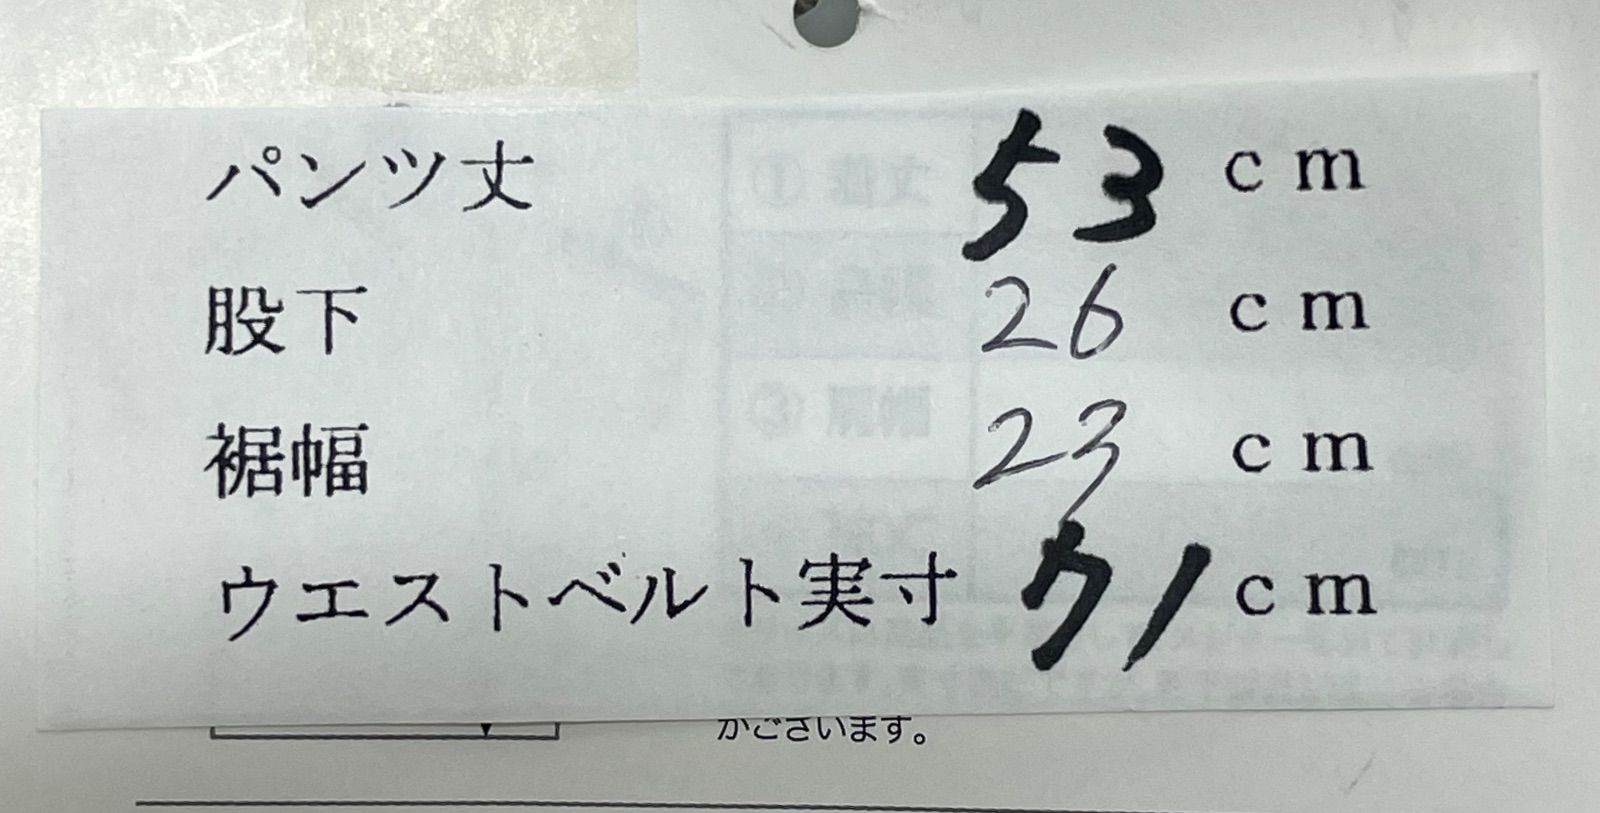 パンツ丈 53 cm
股下 26 cm
裾幅 23 cm
ウエストベルト実寸 71 cm
がございます。